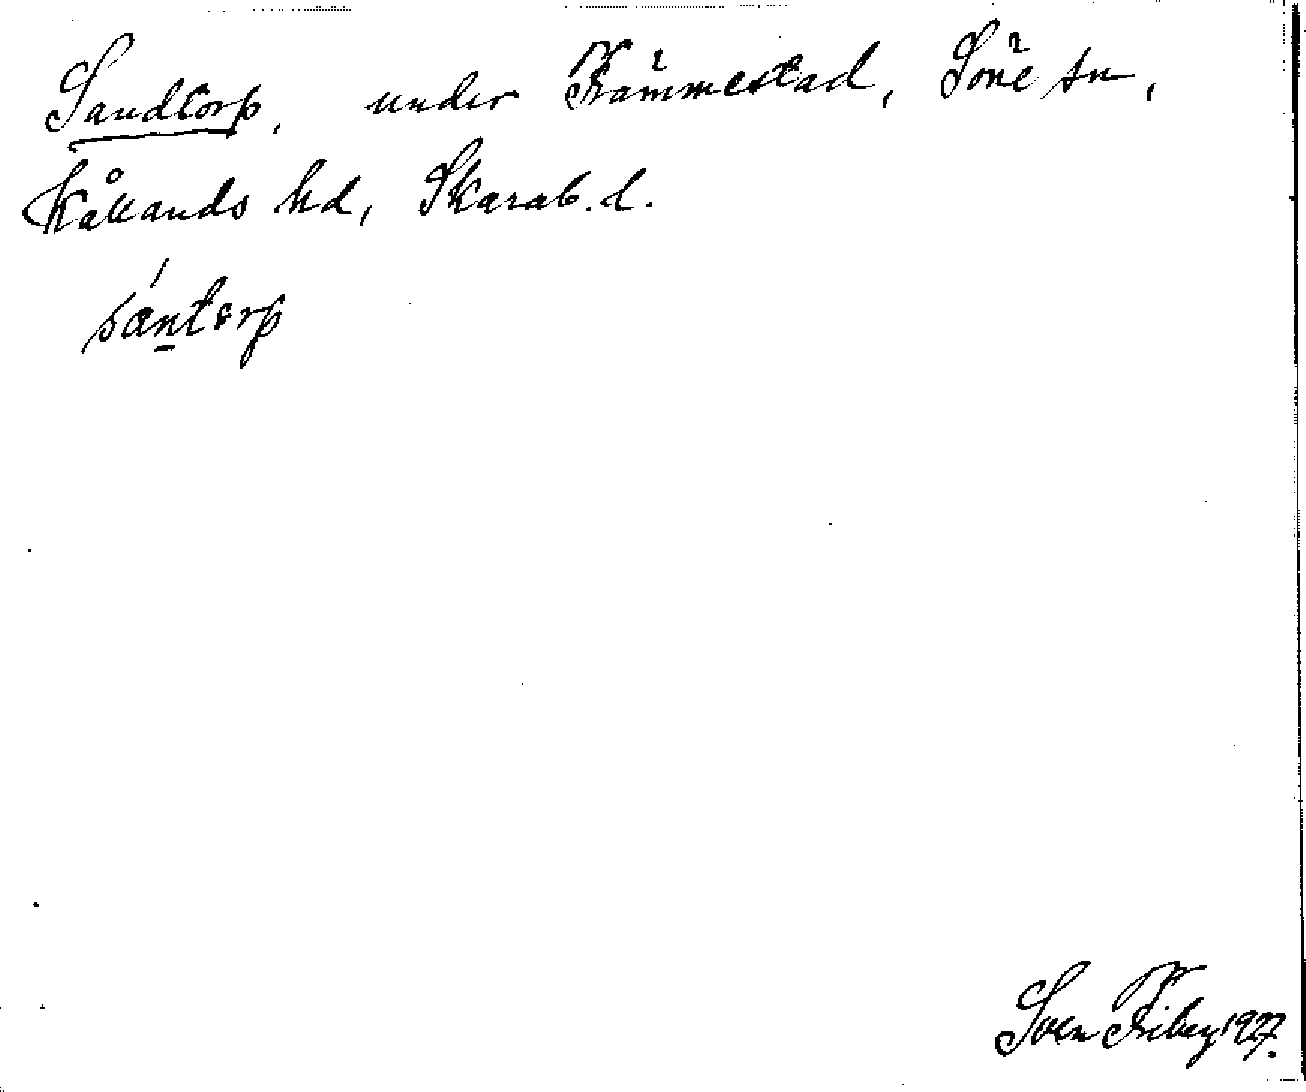 Sandtorp, under Främmestad, Söne sn,
Kållands hd, Skarab. l.
sántorp
Sven Friberg 1927.